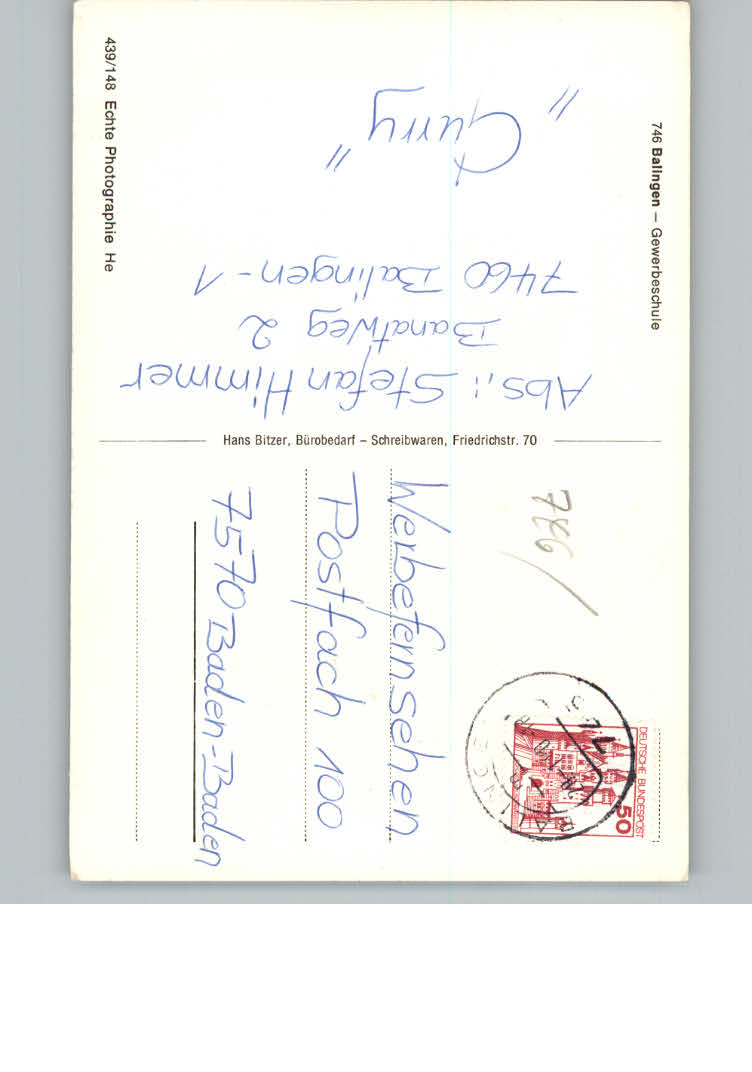 746 Balingen — Gewerbeschule
" Gurry "
Abs.: Stefan Himmer
Banatweg 2
7460 Balingen-1
439/148 Echte Photographie He
Hans Bitzer, Bürobedarf – Schreibwaren, Friedrichstr. 70
786/
DEUTSCHE BUNDESPOST
50
Werbefernsehen
Postfach 100
7570 Baden-Baden